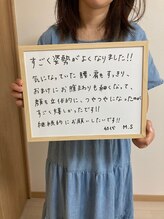 すごく姿勢がよくなりました!!
気になっていた腰・肩もすっきり、
おまけにお腹まわりも細くなって、
顔も立体的に、つやつやになったのが
すごく嬉しかったです!!
継続的にお願いしたいです!!
40代 M.S